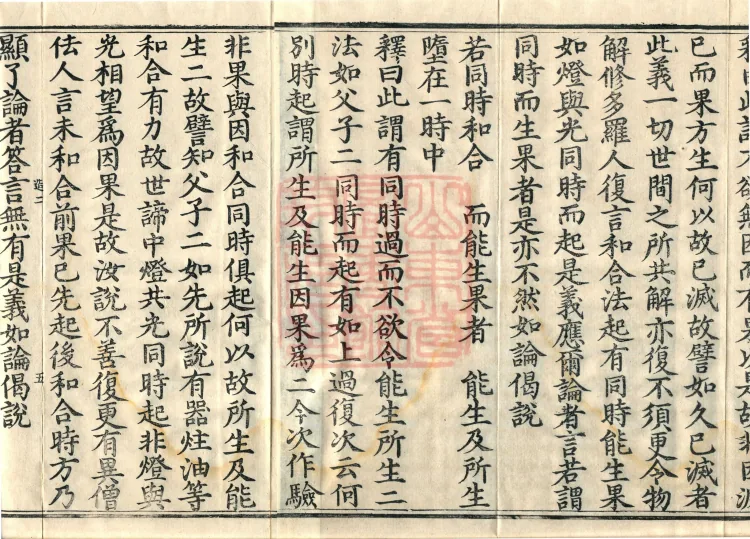 已而果方生何以故已滅故譬如久已滅者
此義一切世間之所共解亦復不須更令物
解修多羅人復言和合法起有同時能生果
如燈與光同時而起是義應爾論者言若謂
同時而生果者是亦不然如論偈說
若同時和合 而能生果者 能生及所生
墮在一時中
釋曰此謂有同時過而不欲令能生所生二
法如父子二同時而起有如上過復次云何
別時起謂所生及能生因果為二今次作驗
非果與因和合同時俱起何以故所生及能
生二故譬知父子二如先所說有器炷油等
和合有力故世諦中燈共光同時起非燈與
光相望為因果是故汝說不善復更有異僧
佉人言未和合前果已先起後和合時方乃
五
顯了論者答言無有是義如論偈說